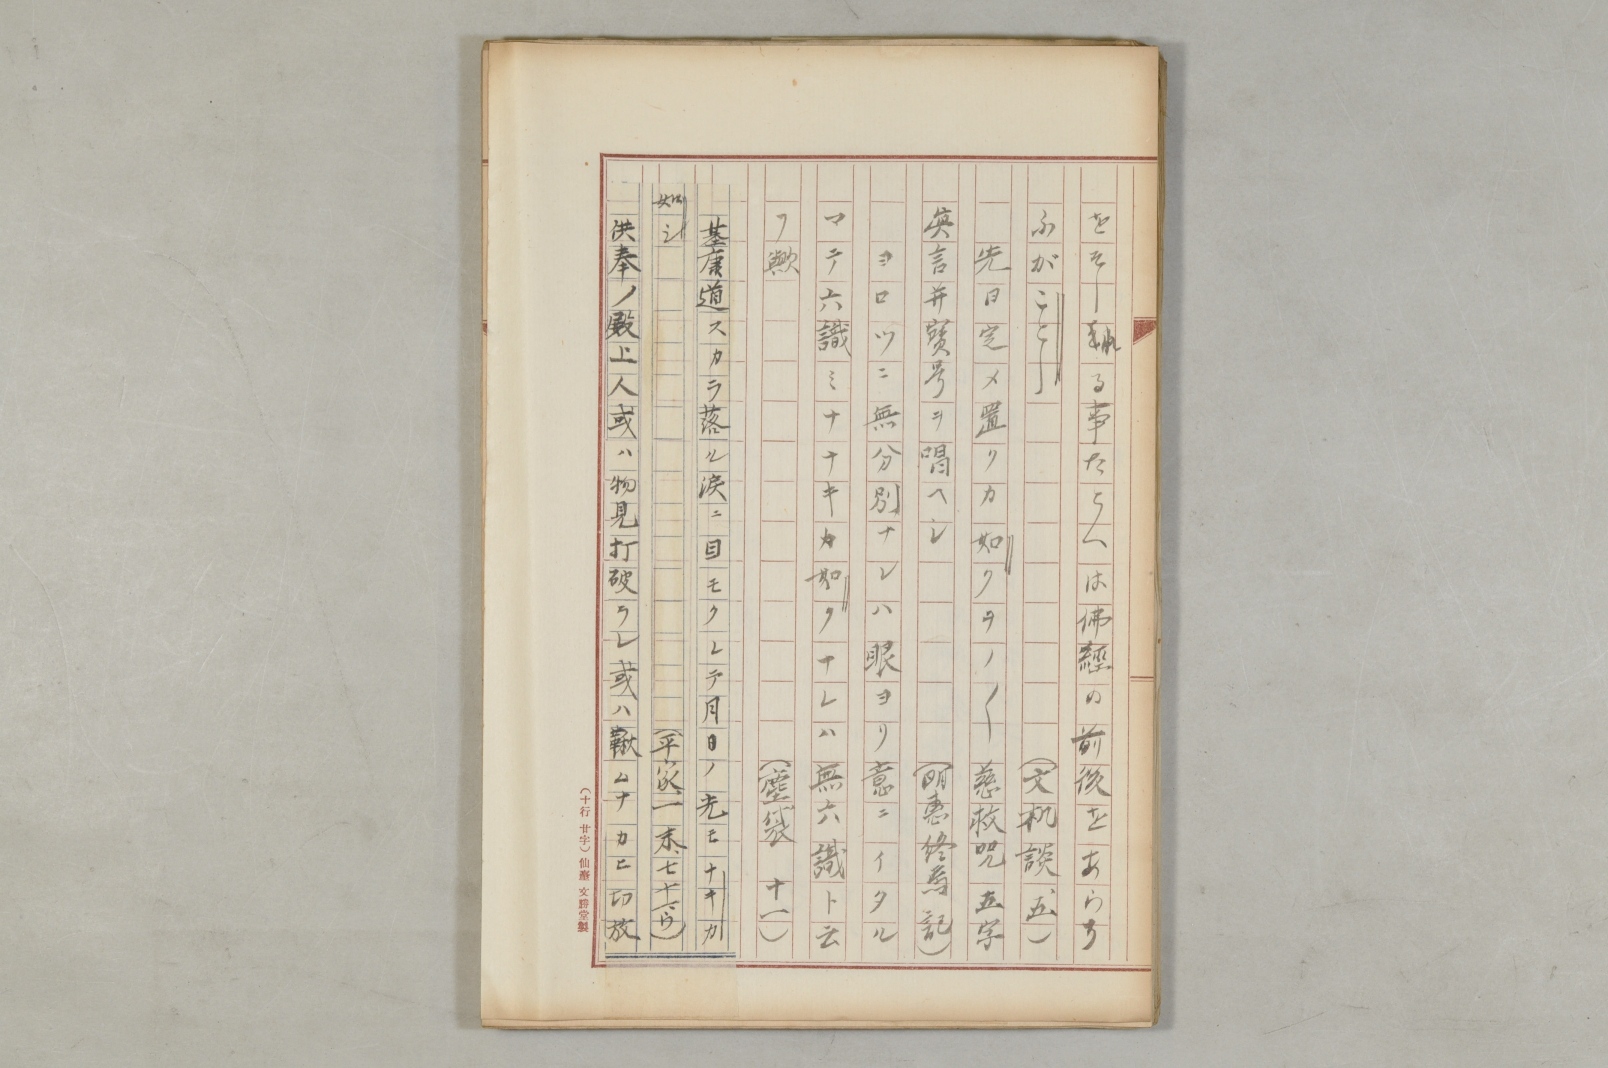 をそー執る事たとへは佛經の前後をあらそ
ふがことし（文机談五）
先日定メ置リカ如クヲノ〱慈救咒五字
真言并寳号ヲ唱ヘシ（明惠終焉記）
ヨロツニ無分別ナレハ眼ヨリ意ニイタル
マテ六識ミナナキカ如クナレハ無六識ト云
フ歟（塵袋十一）
基康道スカラ落ル涙ニ目モクレテ月日ノ光モナキカ
如シ（平家一末七十六ウ）
洪奉ノ殿上人或ハ物見打破ラレ或ハ鞦ムナカヒ切放
（十行廿字）仙臺文勝堂製